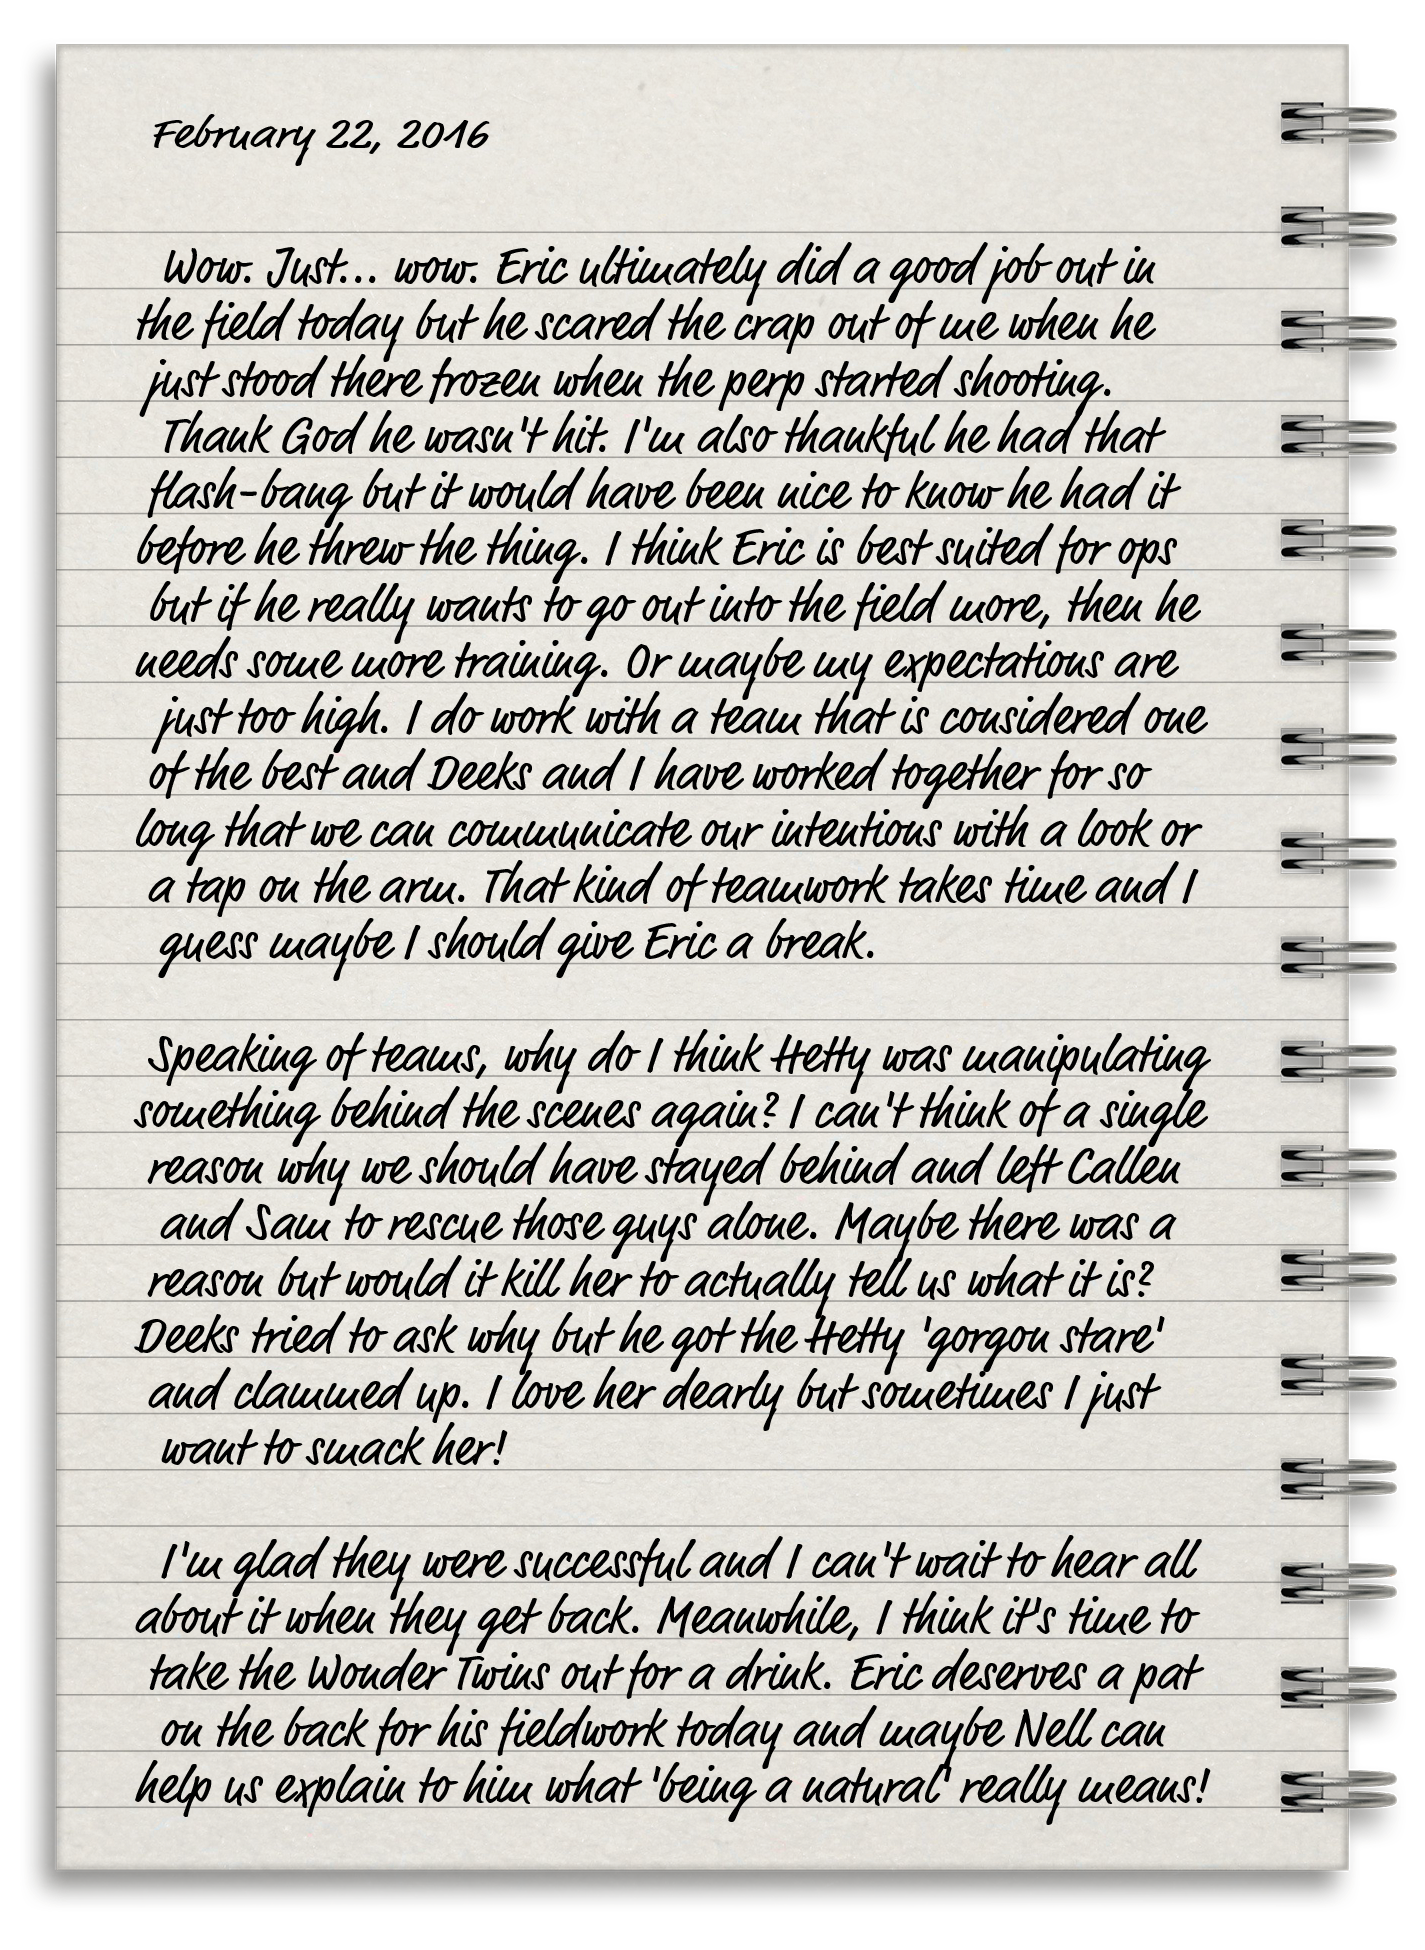 February 22, 2016
Wow. Just... wow. Eric ultimately did a good job out in
the field today but he scared the crap out of me when he
just stood there frozen when the perp started shooting.
Thank God he wasn't hit. I'm also thankful he had that
flash-bang but it would have been nice to know he had it
before he threw the thing. I think Eric is best suited for ops
but if he really wants to go out into the field more, then he
needs some more training. Or maybe my expectations are
just too high. I do work with a team that is considered one
of the best and Deeks and I have worked together for so
long that we can communicate our intentions with a look or
a tap on the arm. That kind of teamwork takes time and I
guess maybe I should give Eric a break.
Speaking of teams, why do I think Hetty was manipulating
something behind the scenes again? I can't think of a single
reason why we should have stayed behind and left Callen
and Sam to rescue those guys alone. Maybe there was a
reason but would it kill her to actually tell us what it is?
Deeks tried to ask why but he got the Hetty 'gorgon stare'
and clammed up. I love her dearly but sometimes I just
want to smack her!
I'm glad they were successful and I can't wait to hear all
about it when they get back. Meanwhile, I think it's time to
take the Wonder Twins out for a drink. Eric deserves a pat
on the back for his fieldwork today and maybe Nell can
help us explain to him what 'being a natural' really means!